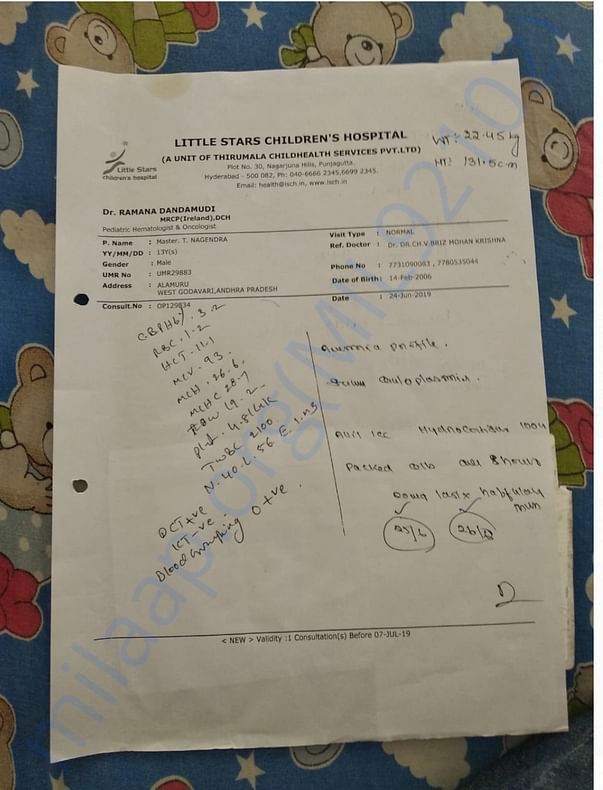 LITTLE STARS CHILDREN'S HOSPITAL
(A UNIT OF THIRUMALA CHILDHEALTH SERVICES PVT.LTD)
Plot No. 30, Nagarjuna Hills, Punjagutta,
Hyderabad - 500 082, Ph: 040-6666 2345,6699 2345.
Email: health@lsch.in, www.lsch.in
Little Stars
children's hospital
WT: 22.45 kg
HT: 131.5cm
Dr. RAMANA DANDAMUDI
MRCP(Ireland),DCH
Pediatric Hematologist & Oncologist
P. Name : Master. T. NAGENDRA
YY/MM/DD : 13Y(s)
Gender : Male
UMR No : UMR29883
Address : ALAMURU
WEST GODAVARI,ANDHRA PRADESH
Consult.No : OP129834
Visit Type : NORMAL
Ref. Doctor : Dr. DR.CH.V.BRIZ MOHAN KRISHNA
Phone No : 7731090083 , 7780535044
Date of Birth: 14-Feb-2006
Date : 24-Jun-2019
CBP Hb% . 3.2
RBC . 1.2
HCT . 11.1
MCV . 93 .
MCH . 26.6.
MCHC 28.7
RDW 19.2
plt . 4.8
TWBC 2100
N. 40. L. 56 E.
DCT +ve
ICT -ve
Blood Grouping O +ve .
profile .
Serum
Hydrocortisone
Packed cells 8 hours
lasix halfway
25/6 26/6
< NEW > Validity :1 Consultation(s) Before 07-JUL-19
milaap.org